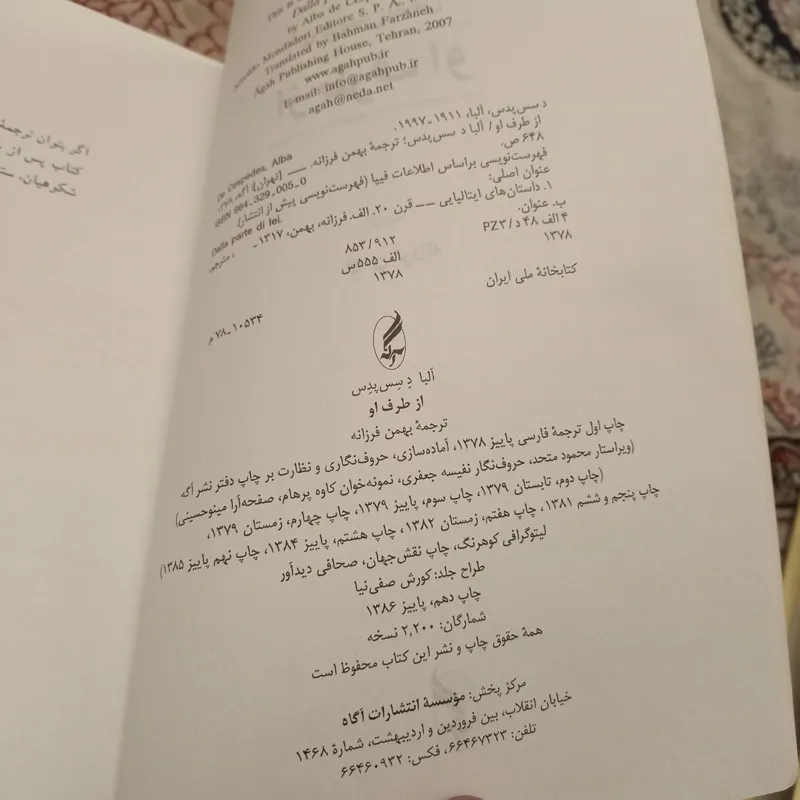 اگر بتوان ترجمهٔ
کتاب پس از
شکوهیان.
This is
Dalla
by Alba de Cés
Arnoldo Mondadori Editore S. P. A.,
Translated by Bahman Farzāneh
Agah Publishing House, Tehran, 2007
www.agahpub.ir
E-mail: info@agahpub.ir
agah@neda.net
De Cespedes, Alba
د سس‌پدس، آلبا، ۱۹۱۱-۱۹۹۷.
از طرف او/ آلبا د سس‌پدس؛ ترجمهٔ بهمن فرزانه. __ [تهران]: آگه، ۱۳۷۸.
۶۴۸ ص.
ISBN 964-329-005-0
فهرست‌نویسی براساس اطلاعات فیپا (فهرست‌نویسی پیش از انتشار).
عنوان اصلی: Dalla parte di lei.
۱. داستان‌های ایتالیایی -- قرن ۲۰. الف. فرزانه، بهمن، ۱۳۱۷- ، مترجم.
ب. عنوان.
۴ الف ۴۸ د/ PZ۳
۸۵۳/۹۱۲
۱۳۷۸
الف ۵۵۵س
۱۳۷۸
کتابخانهٔ ملی ایران
۷۸-۱۰۵۳۴م
آگه
آلبا دِ سِس‌پدِس
از طرف او
ترجمهٔ بهمن فرزانه
چاپ اول ترجمهٔ فارسی پاییز ۱۳۷۸، آماده‌سازی، حروف‌نگاری و نظارت بر چاپ دفتر نشر آگه
(ویراستار محمود متحد، حروف‌نگار نفیسه جعفری، نمونه‌خوان کاوه پرهام، صفحه‌آرا مینوحسینی)
(چاپ دوم، تابستان ۱۳۷۹، چاپ سوم، پاییز ۱۳۷۹، چاپ چهارم، زمستان ۱۳۷۹،
چاپ پنجم و ششم ۱۳۸۱، چاپ هفتم، زمستان ۱۳۸۲، چاپ هشتم، پاییز ۱۳۸۴، چاپ نهم پاییز ۱۳۸۵)
لیتوگرافی کوهرنگ، چاپ نقش‌جهان، صحافی دیدآور
طراح جلد: کورش صفی‌نیا
چاپ دهم، پاییز ۱۳۸۶
شمارگان: ۲,۲۰۰ نسخه
همهٔ حقوق چاپ و نشر این کتاب محفوظ است
مرکز پخش: مؤسسهٔ انتشارات آگاه
خیابان انقلاب، بین فروردین و اردیبهشت، شمارهٔ ۱۴۶۸
تلفن: ۶۶۴۶۷۳۲۳، فکس: ۶۶۴۶۰۹۳۲